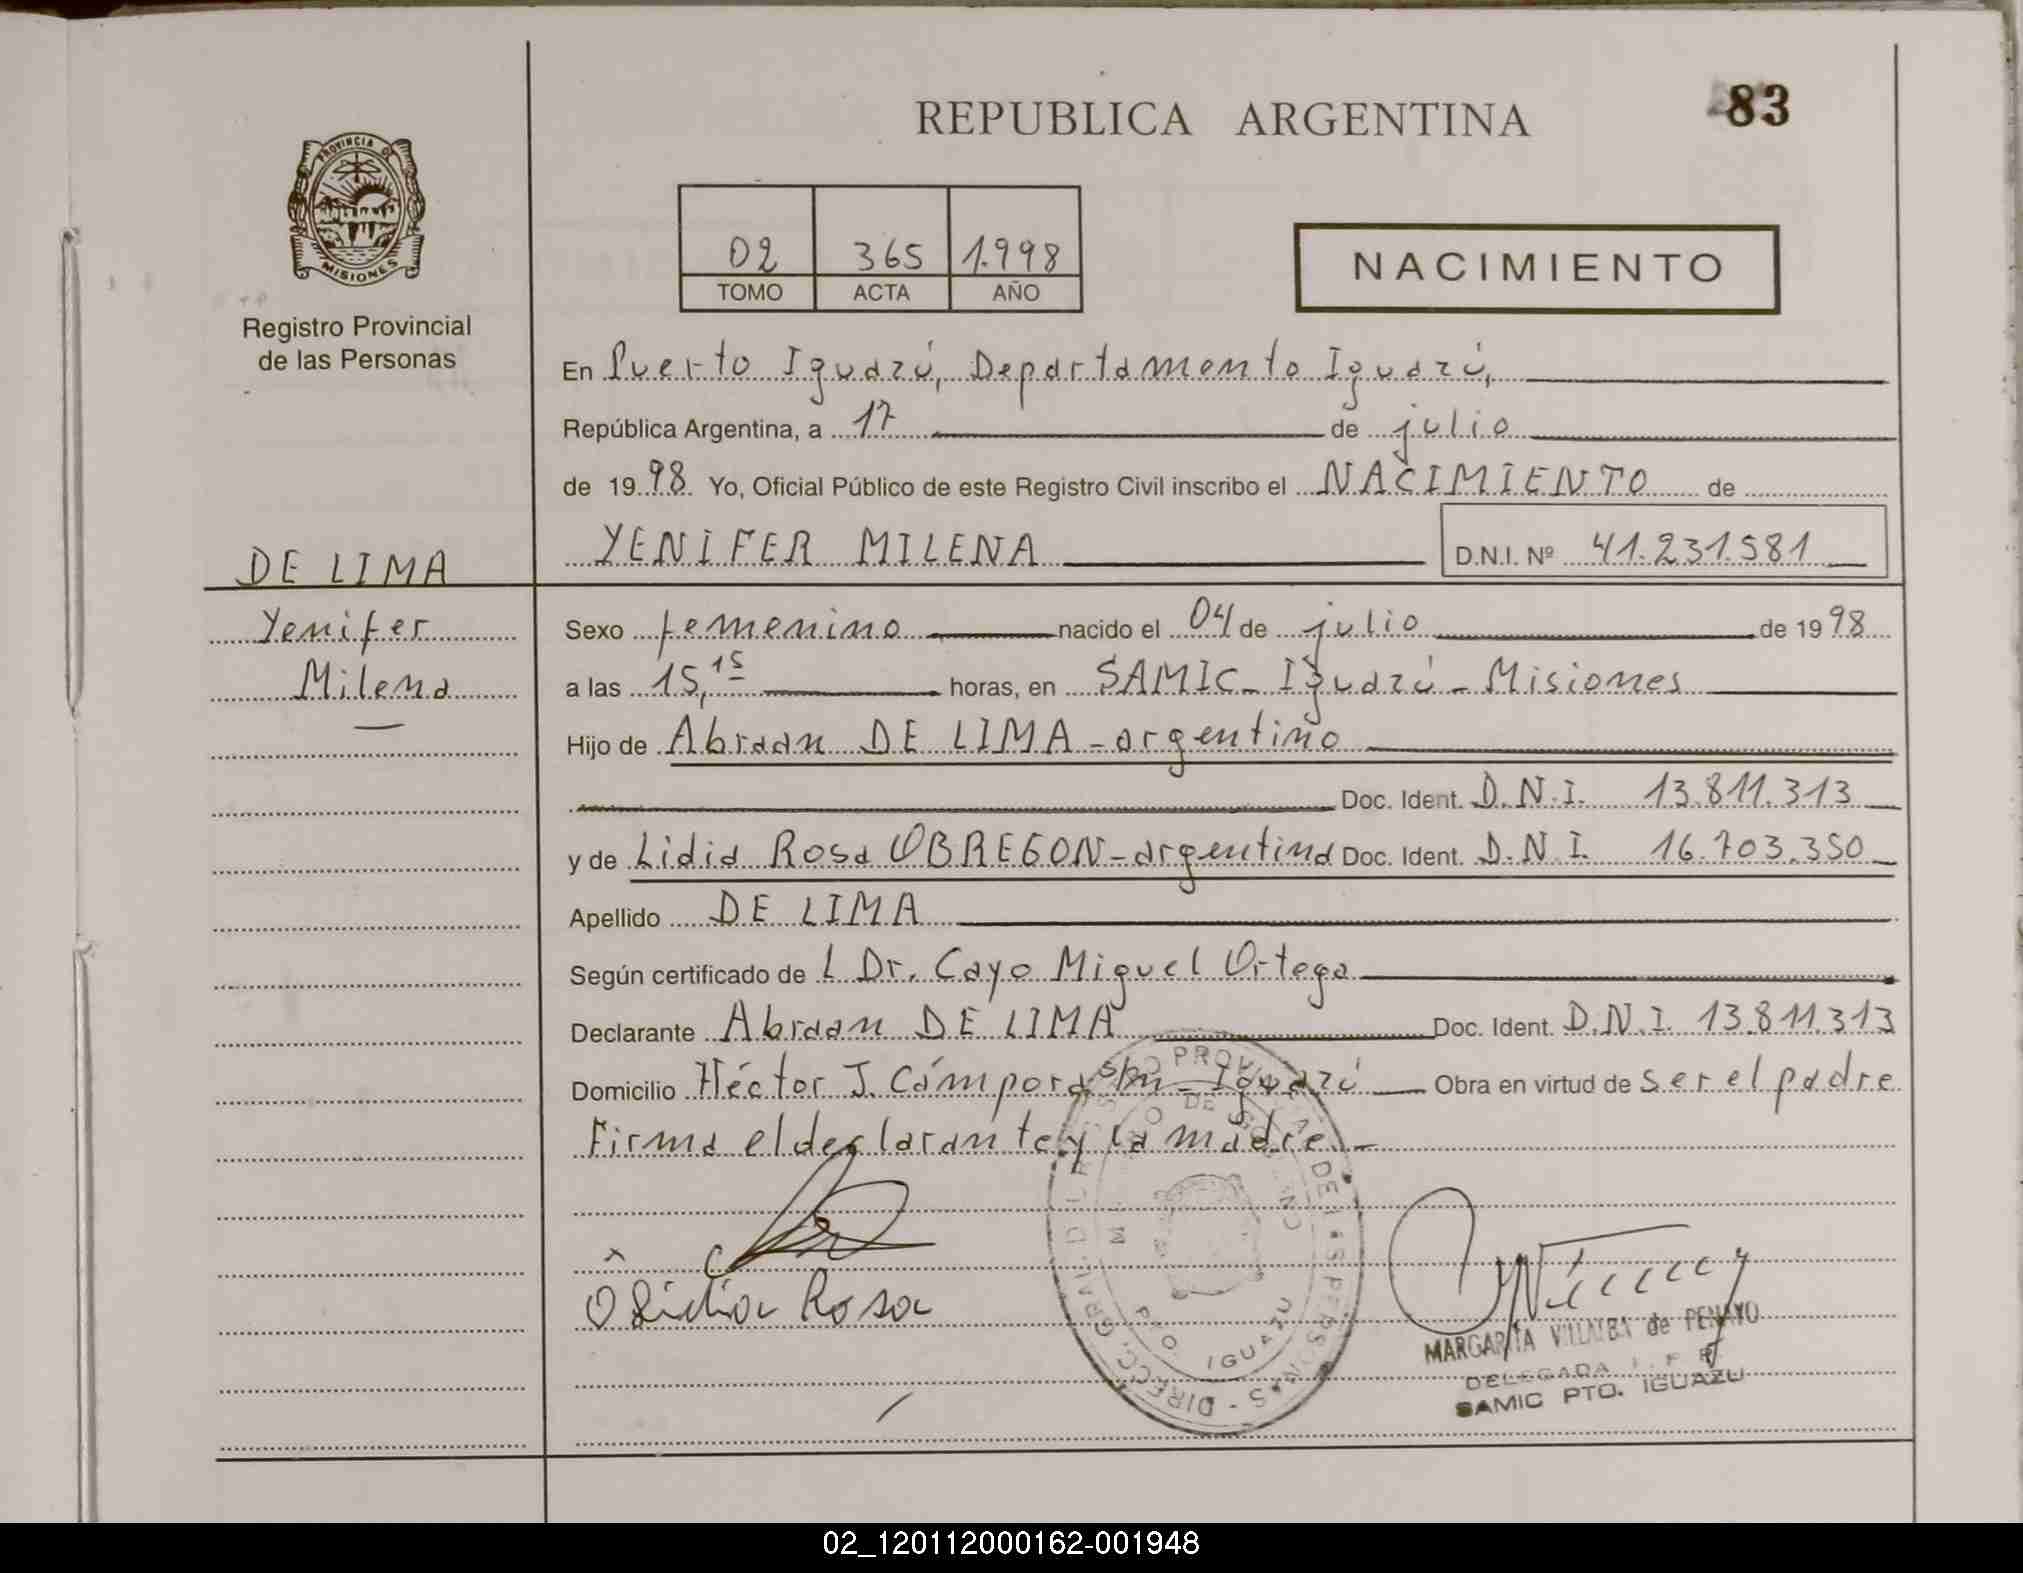 REPUBLICA ARGENTINA
83
PROVINCIA DE
MISIONES
Registro Provincial
de las Personas
02 365 1.998
TOMO ACTA AÑO
NACIMIENTO
En Puerto Iguazú, Departamento Iguazú,
República Argentina, a 17 de julio
de 1998. Yo, Oficial Público de este Registro Civil inscribo el NACIMIENTO de
YENIFER MILENA D.N.I. Nº 41.231.581
DE LIMA
Yenifer
Milena
Sexo femenino nacido el 04 de julio de 1998
a las 15,15 horas, en SAMIC - Iguazú - Misiones
Hijo de Abraan DE LIMA - argentino
Doc. Ident. D.N.I. 13.811.313
y de Lidia Rosa OBREGON - argentina Doc. Ident. D.N.I. 16.703.350
Apellido DE LIMA
Según certificado de L Dr. Cayo Miguel Ortega
Declarante Abraan DE LIMA Doc. Ident. D.N.I. 13.811.313
Domicilio Héctor J. Cámpora s/n - Iguazú Obra en virtud de ser el padre
Firma el declarante y la madre. -
O Lidia Rosa
DIRECC. GRAL. DEL REGISTRO PROVINCIAL DE LAS PERSONAS -
PTO. IGUAZU
MARGARITA VILLALBA de PENAYO
DELEGADA
SAMIC PTO. IGUAZU
02_120112000162-001948